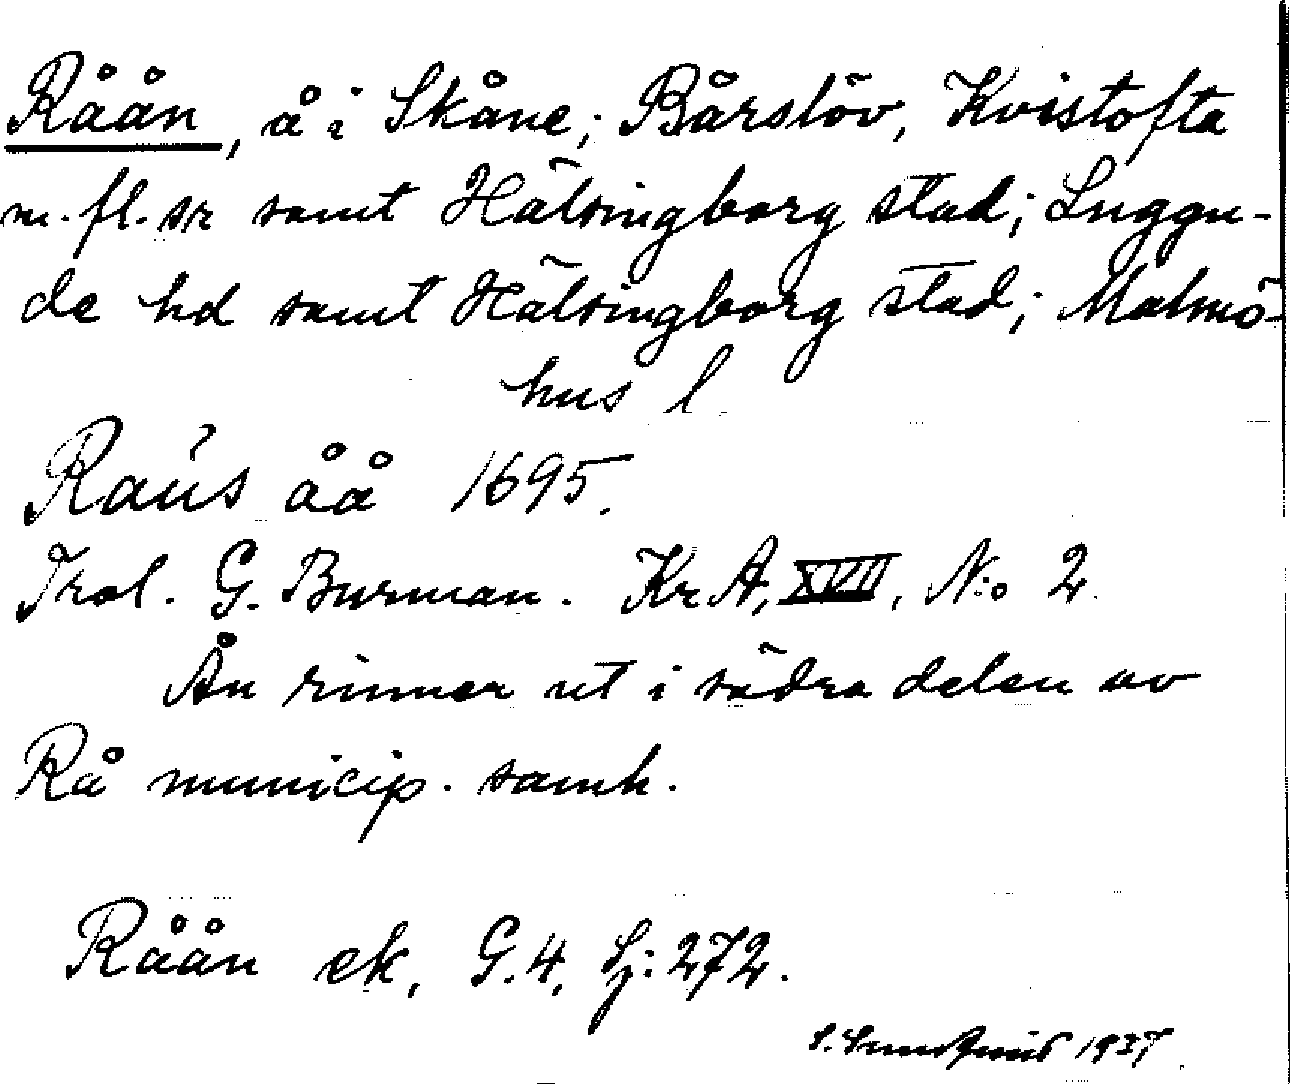 Råån, å i Skåne; Bårslöv, Kvistofta
m. fl. sr samt Hälsingborg stad; Luggu-
de hd samt Hälsingborg stad; Malmö-
hus l
Raus åå 1695.
Trol. G. Burman. Kr A, XVII, N:o 2.
Ån rinner ut i södra delen av
Rå municip. samh.
Råån ek, G. 4, Sj: 272.
1937